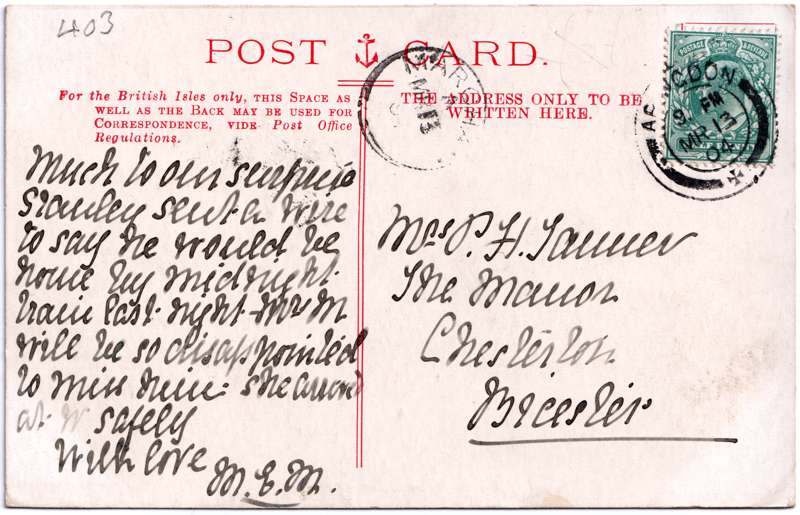 403
POST CARD.
For the British Isles only, THIS SPACE AS
WELL AS THE BACK MAY BE USED FOR
CORRESPONDENCE, VIDE Post Office
Regulations.
THE ADDRESS ONLY TO BE
WRITTEN HERE.
POSTAGE REVENUE
9 PM
MR 13
04
MR 13
Much to our surprise
Stanley sent a wire
to say he would be
home by midnight
train last night Mrs M
will be so disappointed
to miss him: she arrived
at W safely
With love
M.E.M.
Mrs P. H. Tanner
The Manor
Chesterton
Bicester